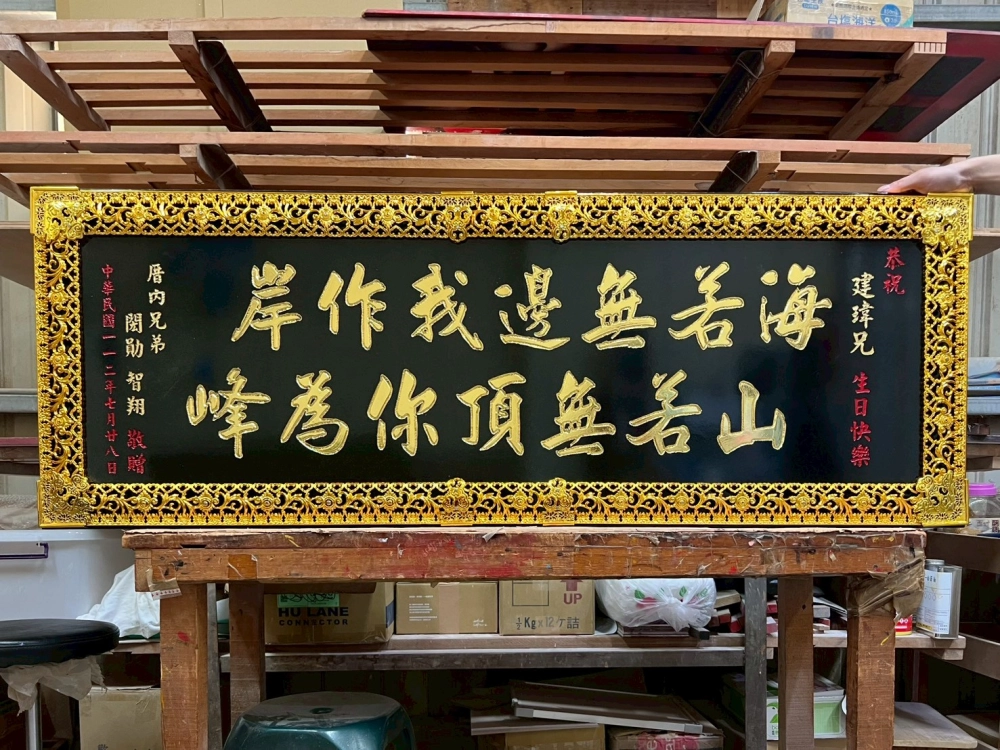 恭祝
建瑋兄
生日快樂
海若無邊我作岸
山若無頂你為峰
厝內兄弟
閎勛 智翔
敬贈
中華民國一一二年七月廿八日
HU LANE
CONNECTOR
UP
½Kg×12ケ詰